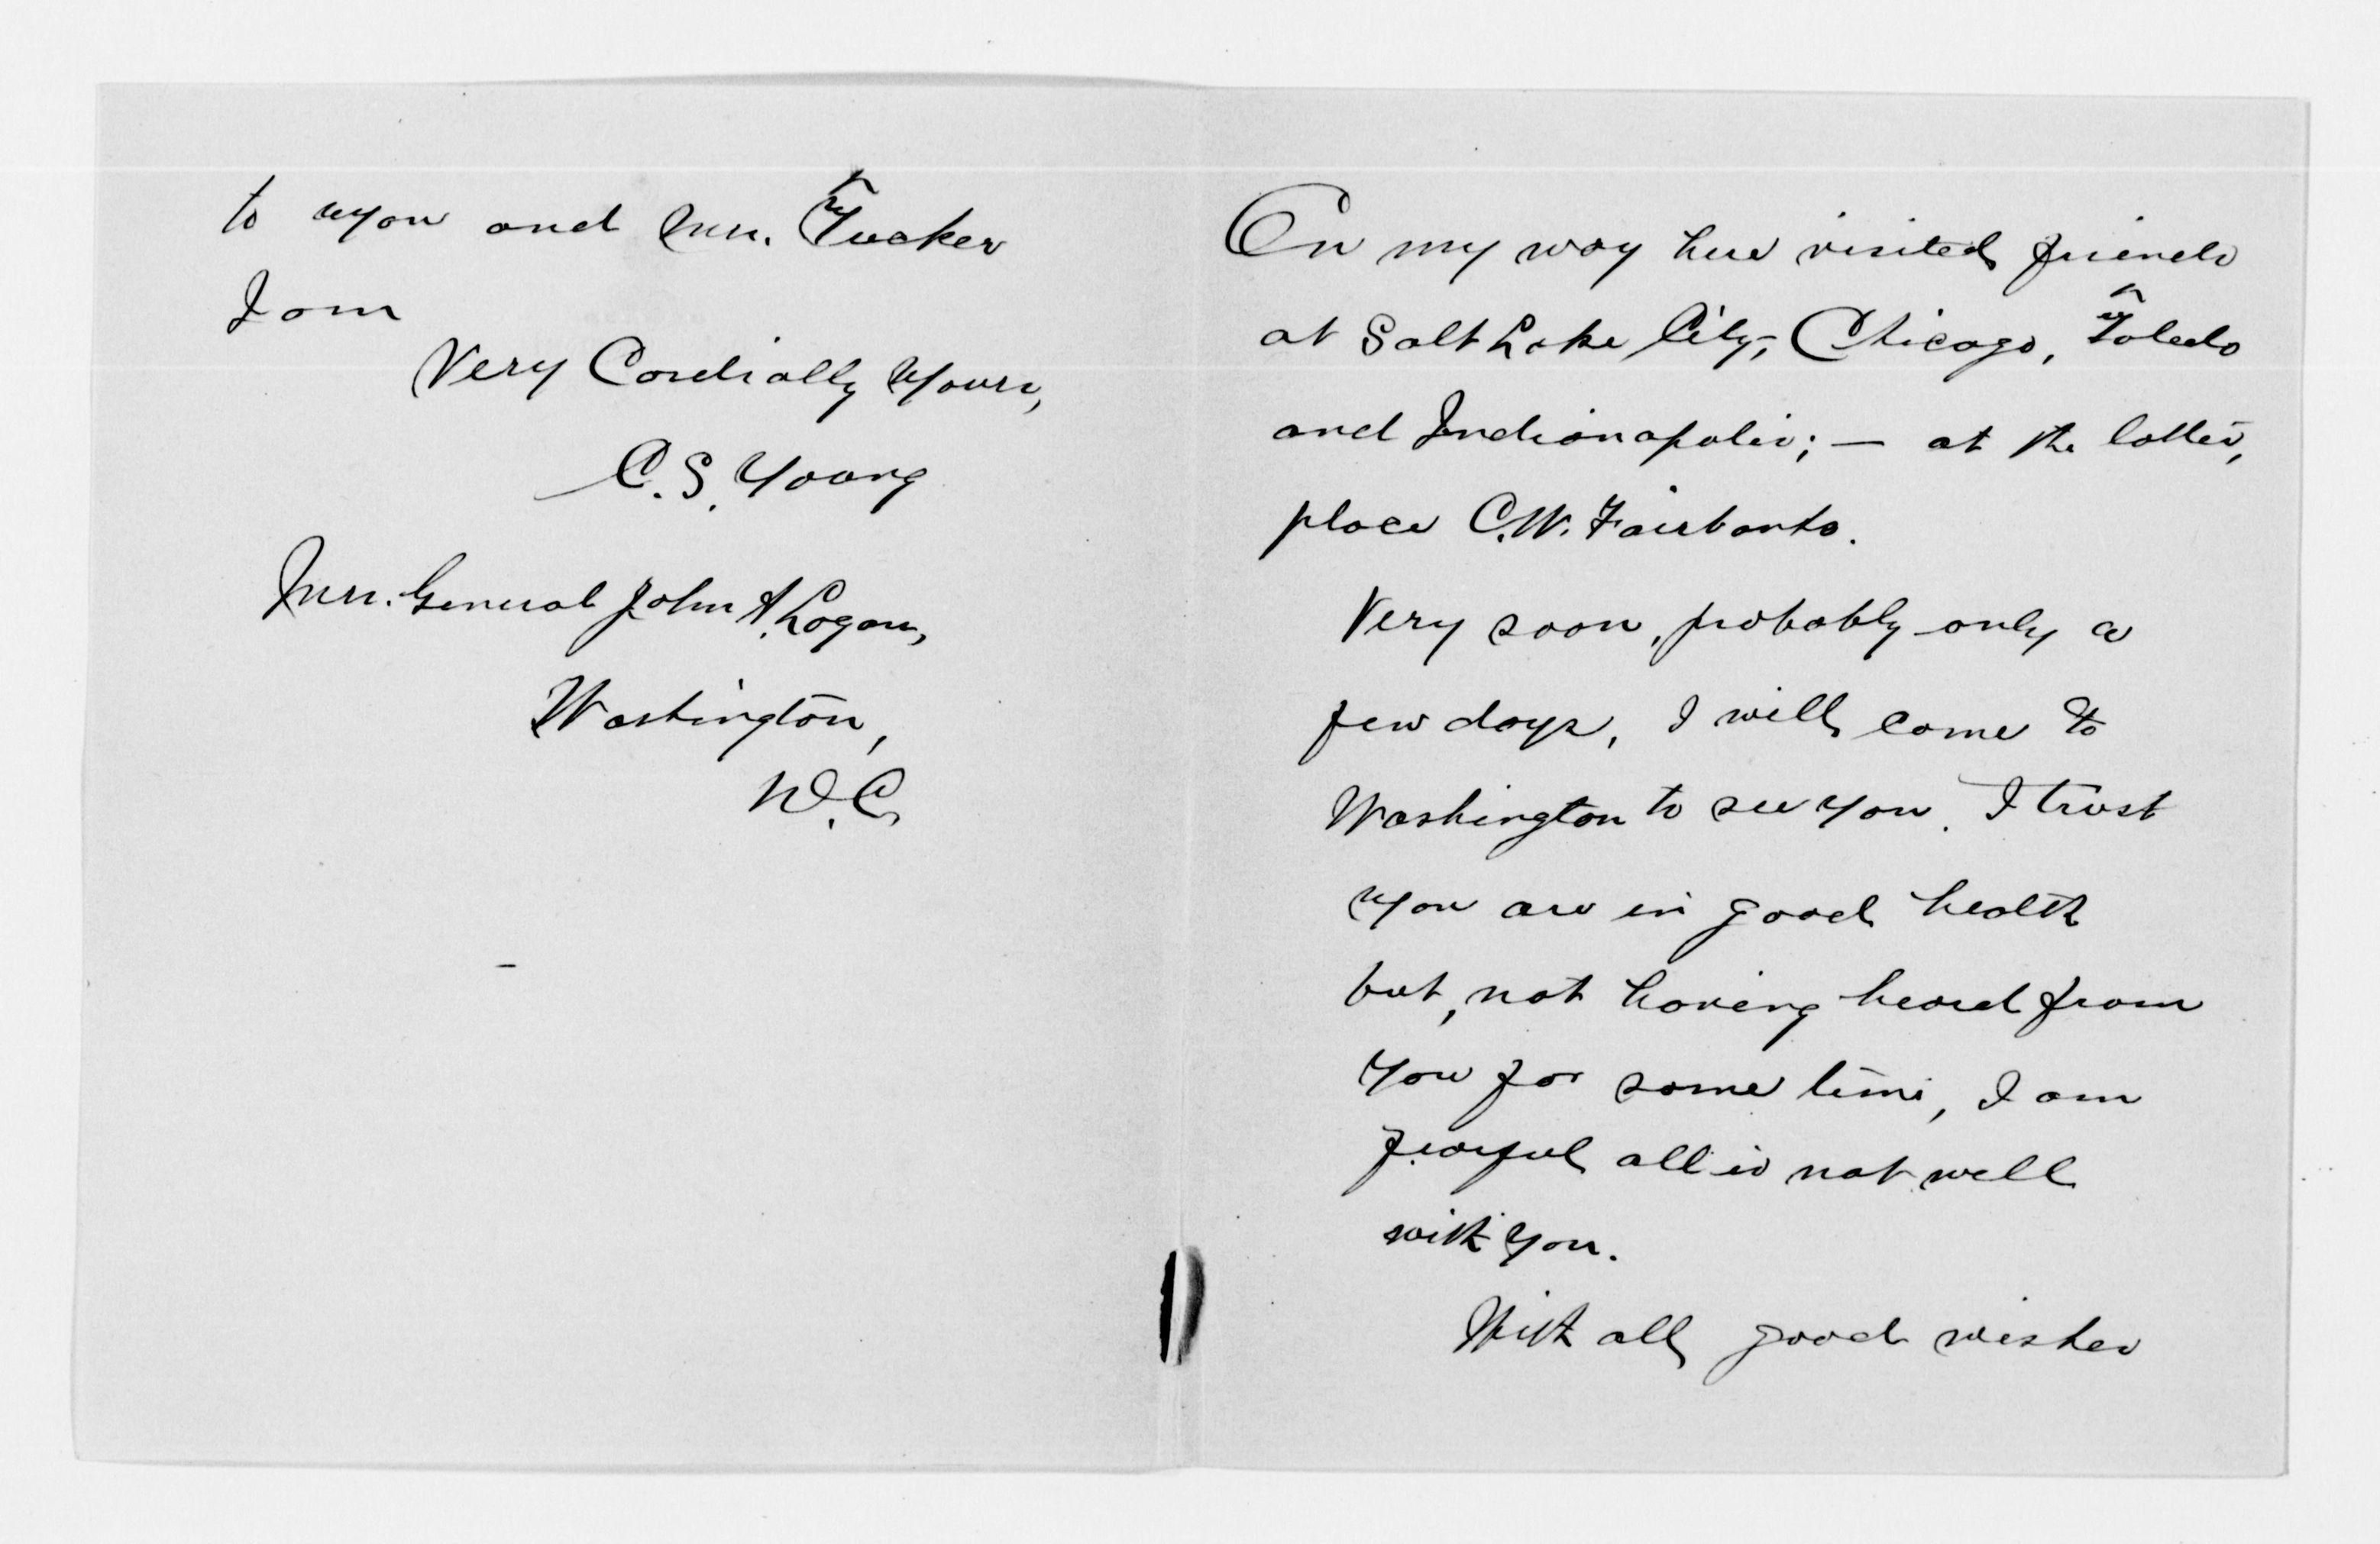 On my way here visited friends
at Salt Lake City, Chicago, Toledo
and Indianapolis; — at the latter,
place C.W. Fairbanks.
Very soon, probably only a
few days, I will come to
Washington to see you. I trust
you are in good health
but, not having heard from
you for some time, I am
fearful all is not well
with you.
With all good wishes
to you and Mrs. Tucker
I am
Very Cordially Yours,
C.S. Young
Mrs. General John A. Logan,
Washington,
D.C.